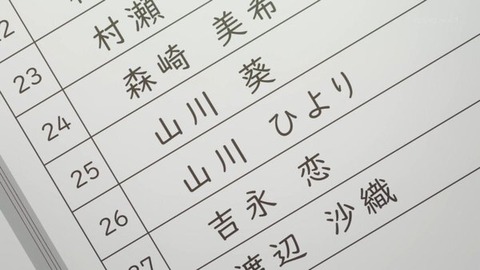 23 村瀬
24 森崎 美希
25 山川 葵
26 山川 ひより
27 吉永 恋
渡辺 沙織